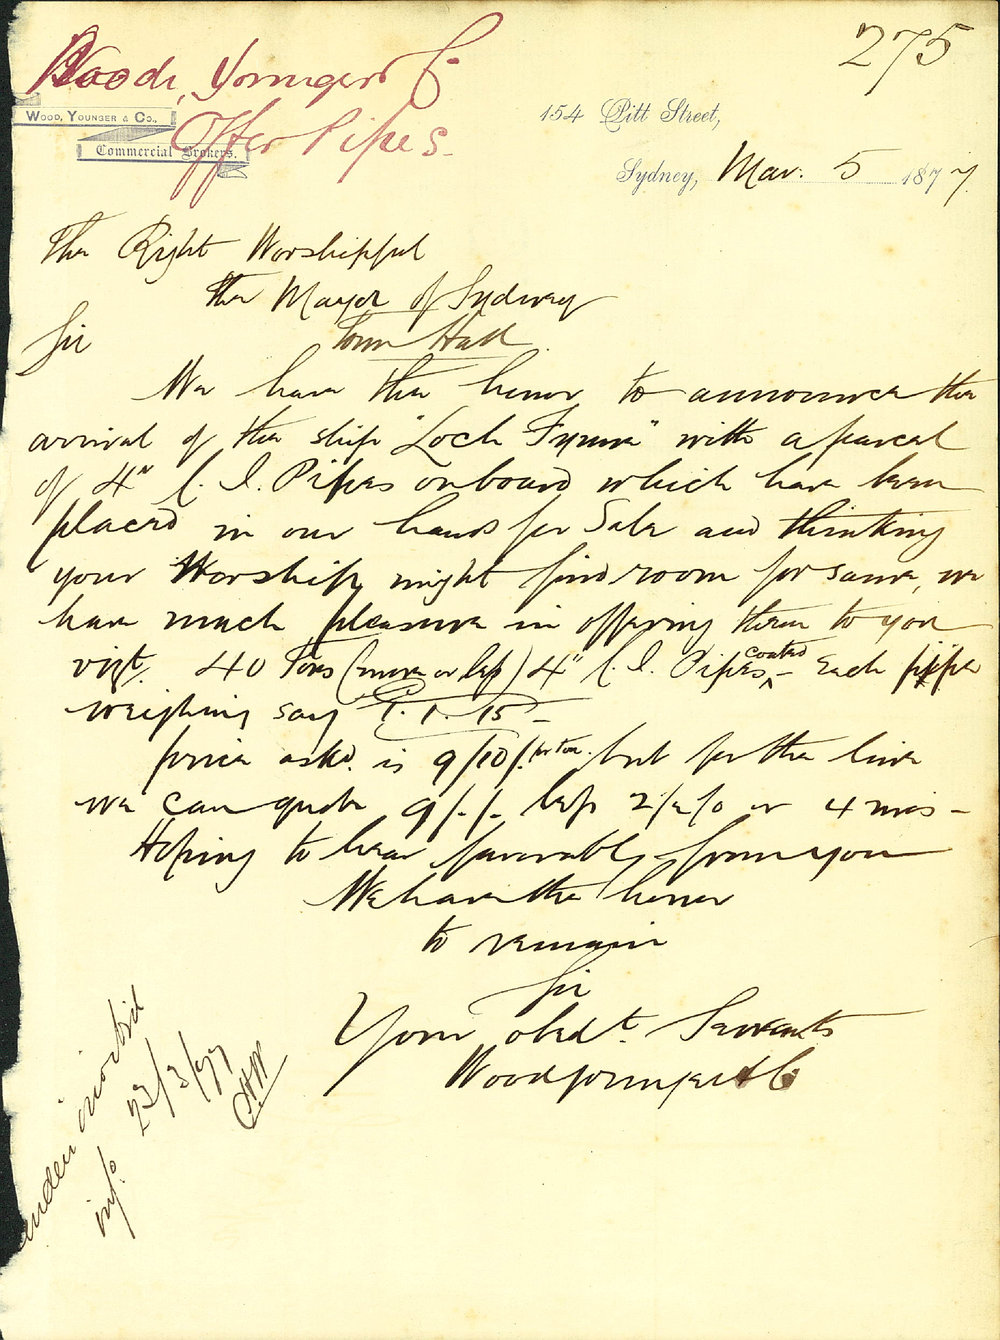 275
Wood, Younger & Co
Offer Pipes.
WOOD, YOUNGER & CO.,
Commercial Brokers.
154 Pitt Street,
Sydney, Mar. 5 1877
The Right Worshipful
The Mayor of Sydney
Town Hall
Sir
We have the honor to announce the
arrival of the ship "Loch Fynne" with a parcel
of 4" C. I. Pipes onboard which have been
placed in our hands for Sale and thinking
your Worship might find room for same, we
have much pleasure in offering them to you
vizt. 40 Tons (more or less) 4" C. I. Pipes coated - Each pipe
weighing say 1. 1. 15 -
price askd. is 9/10/- per ton. but for the line
we can quote 9/-/- less 2½ % or 4 mos -
Hoping to hear favorably from you
We have the honor
to remain
Sir
Your obedt. Servants
Wood Younger & Co
inf.
23/3/77